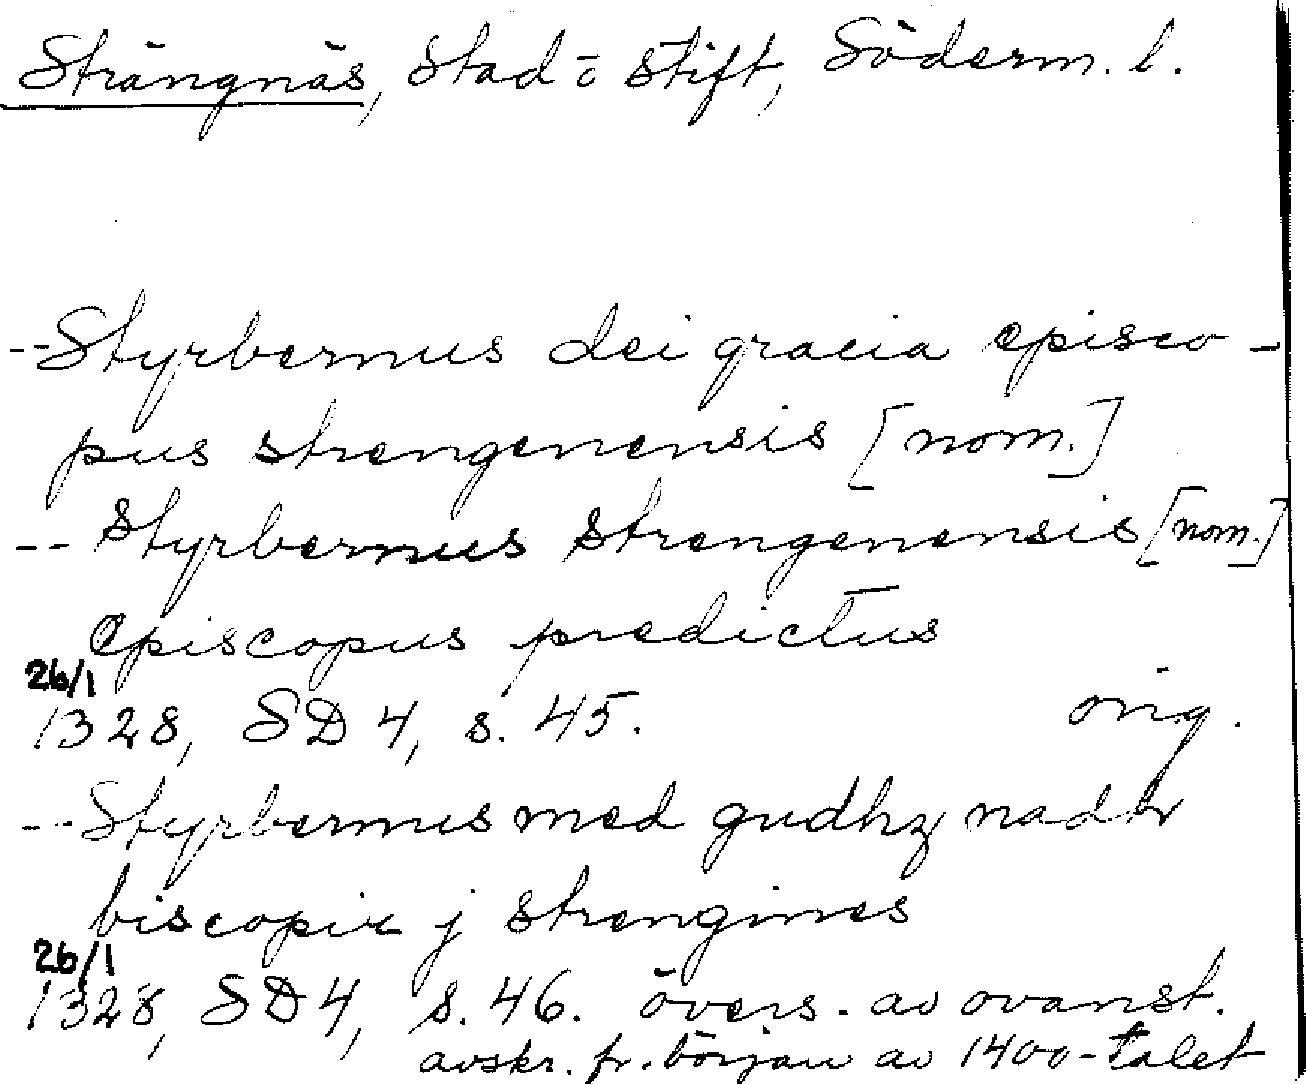 Strängnäs, Stad o stift, Söderm. l.
--Styrbernus dei gracia episco-
pus strengenensis [nom.]
-- Styrbernus strengenensis [nom.]
episcopus predictus
26/1
1328, SD 4, s. 45. orig.
--Styrbernus med gudhz nadh
biscopir j strengines
26/1
1328, SD 4, s. 46. övers. av ovanst.
avskr. fr. början av 1400-talet